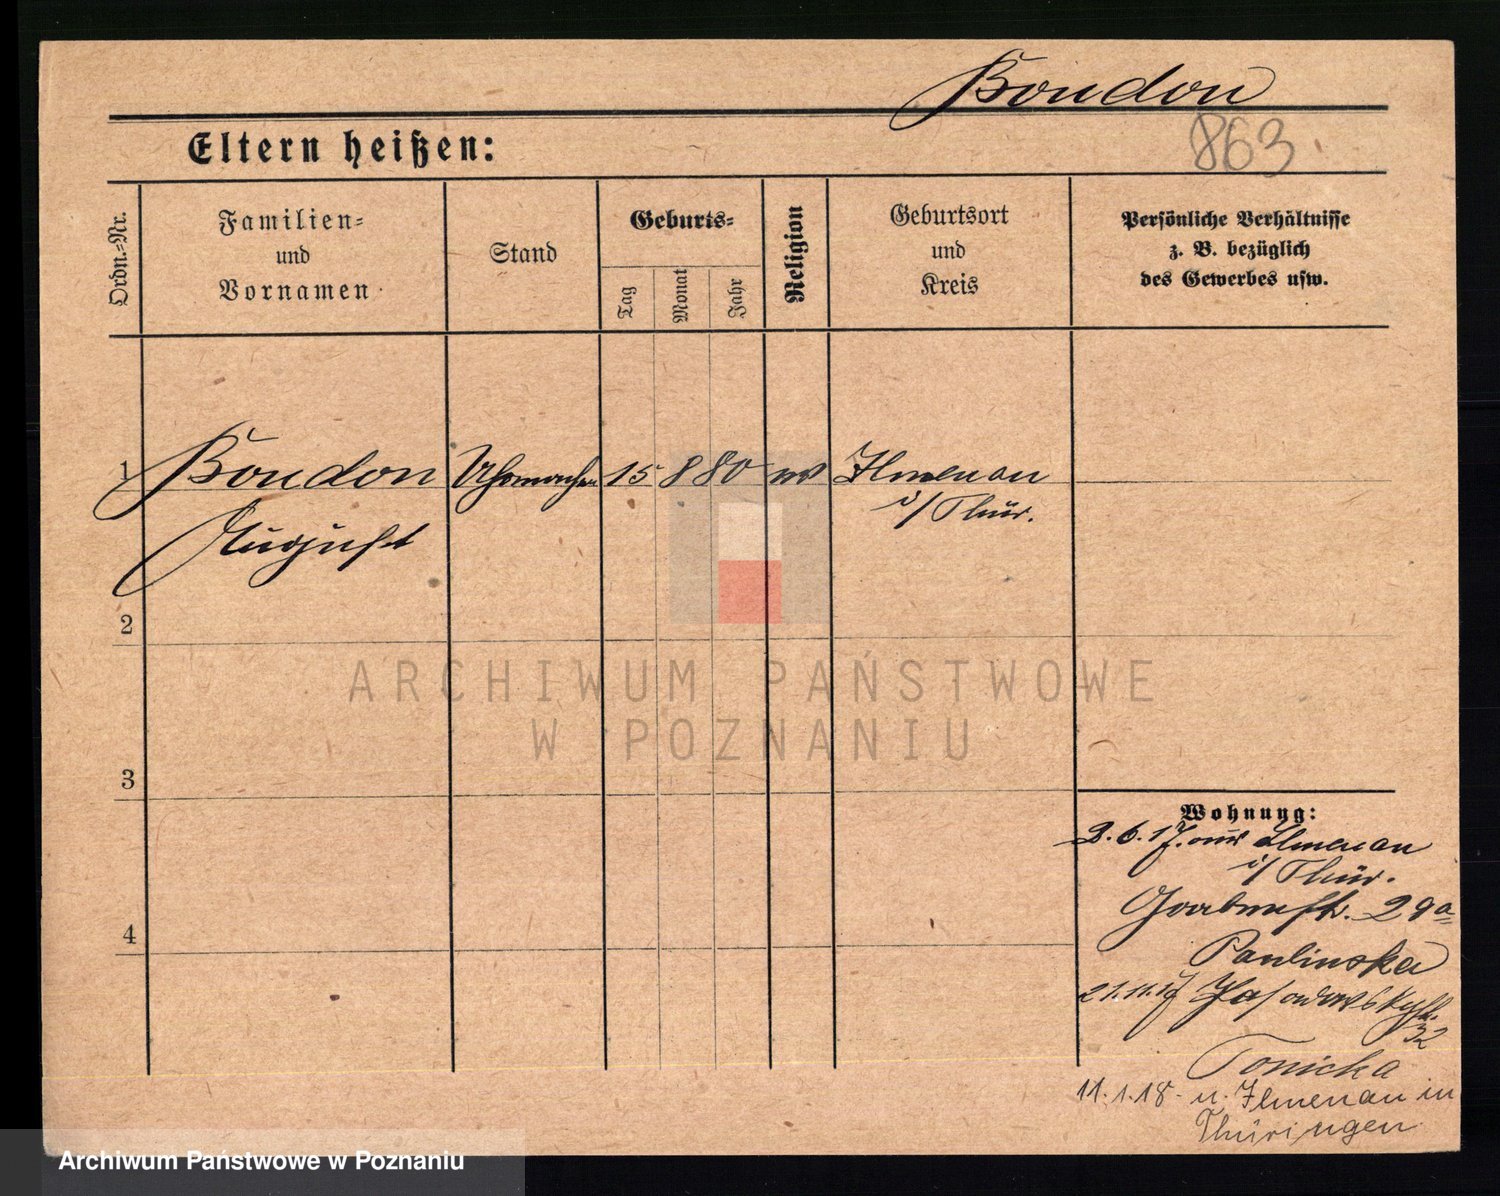 Boudon
863
Eltern heißen:
Ordn.-Nr.
Familien-
und
Vornamen
Stand
Geburts-
Tag
Monat
Jahr
Religion
Geburtsort
und
Kreis
Persönliche Verhältnisse
z. B. bezüglich
des Gewerbes usw.
1
Boudon
August
Uhrmacher
15
8
80
ev
Ilmenau
i/Thür.
2
3
4
Wohnung:
2.6.17. aus Ilmenau
i/Thür.
29a
Paulinska
21.11.17
32
Tonicka
11.1.18. n. Ilmenau in
Thüringen
ARCHIWUM PAŃSTWOWE
W POZNANIU
Archiwum Państwowe w Poznaniu